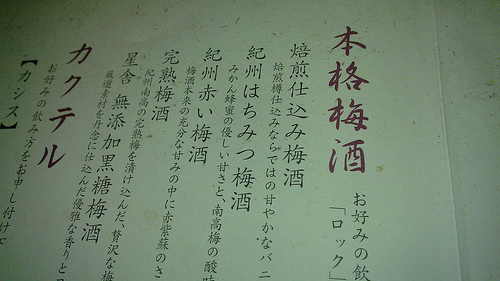 本格梅酒
お好みの飲
「ロック」
焙煎仕込み梅酒
焙煎樽仕込みならではの甘やかなバニ
紀州はちみつ梅酒
みかん蜂蜜の優しい甘さと、南高梅の酸味
紀州赤い梅酒
梅酒本来の充分な甘みの中に赤紫蘇のさ
完熟梅酒
紀州南高の完熟梅を漬け込んだ、贅沢な梅
星舎 無添加黒糖梅酒
厳選素材を丹念に仕込んだ優雅な香りと
カクテル
お好みの飲み方をお申し付け下
【カシス】